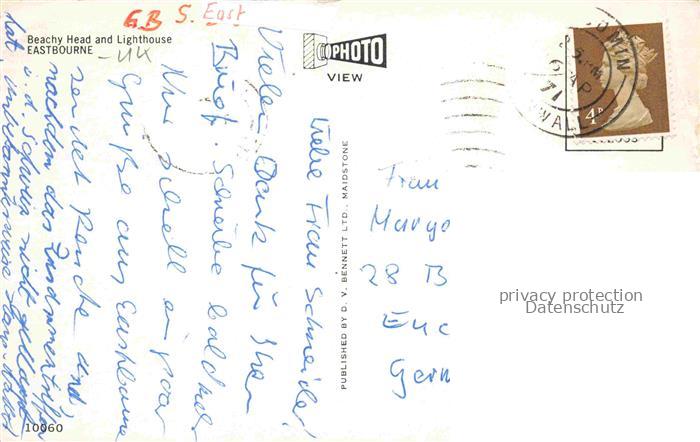 GB S. East
Beachy Head and Lighthouse
EASTBOURNE
-UK
PHOTO
VIEW
4P
71
WALL
Liebe Frau Schneider!
Vielen Dank für Ihren
Brief. Schreibe bald mehr.
Nur schnell ein paar
Grüße aus Eastbourne
sendet Renate und
nachdem das Zusammentreffen
nicht geklappt
hat,
PUBLISHED BY D. V. BENNETT LTD., MAIDSTONE
Frau
Margo
28 B
Euc
Germ
privacy protection
Datenschutz
10060